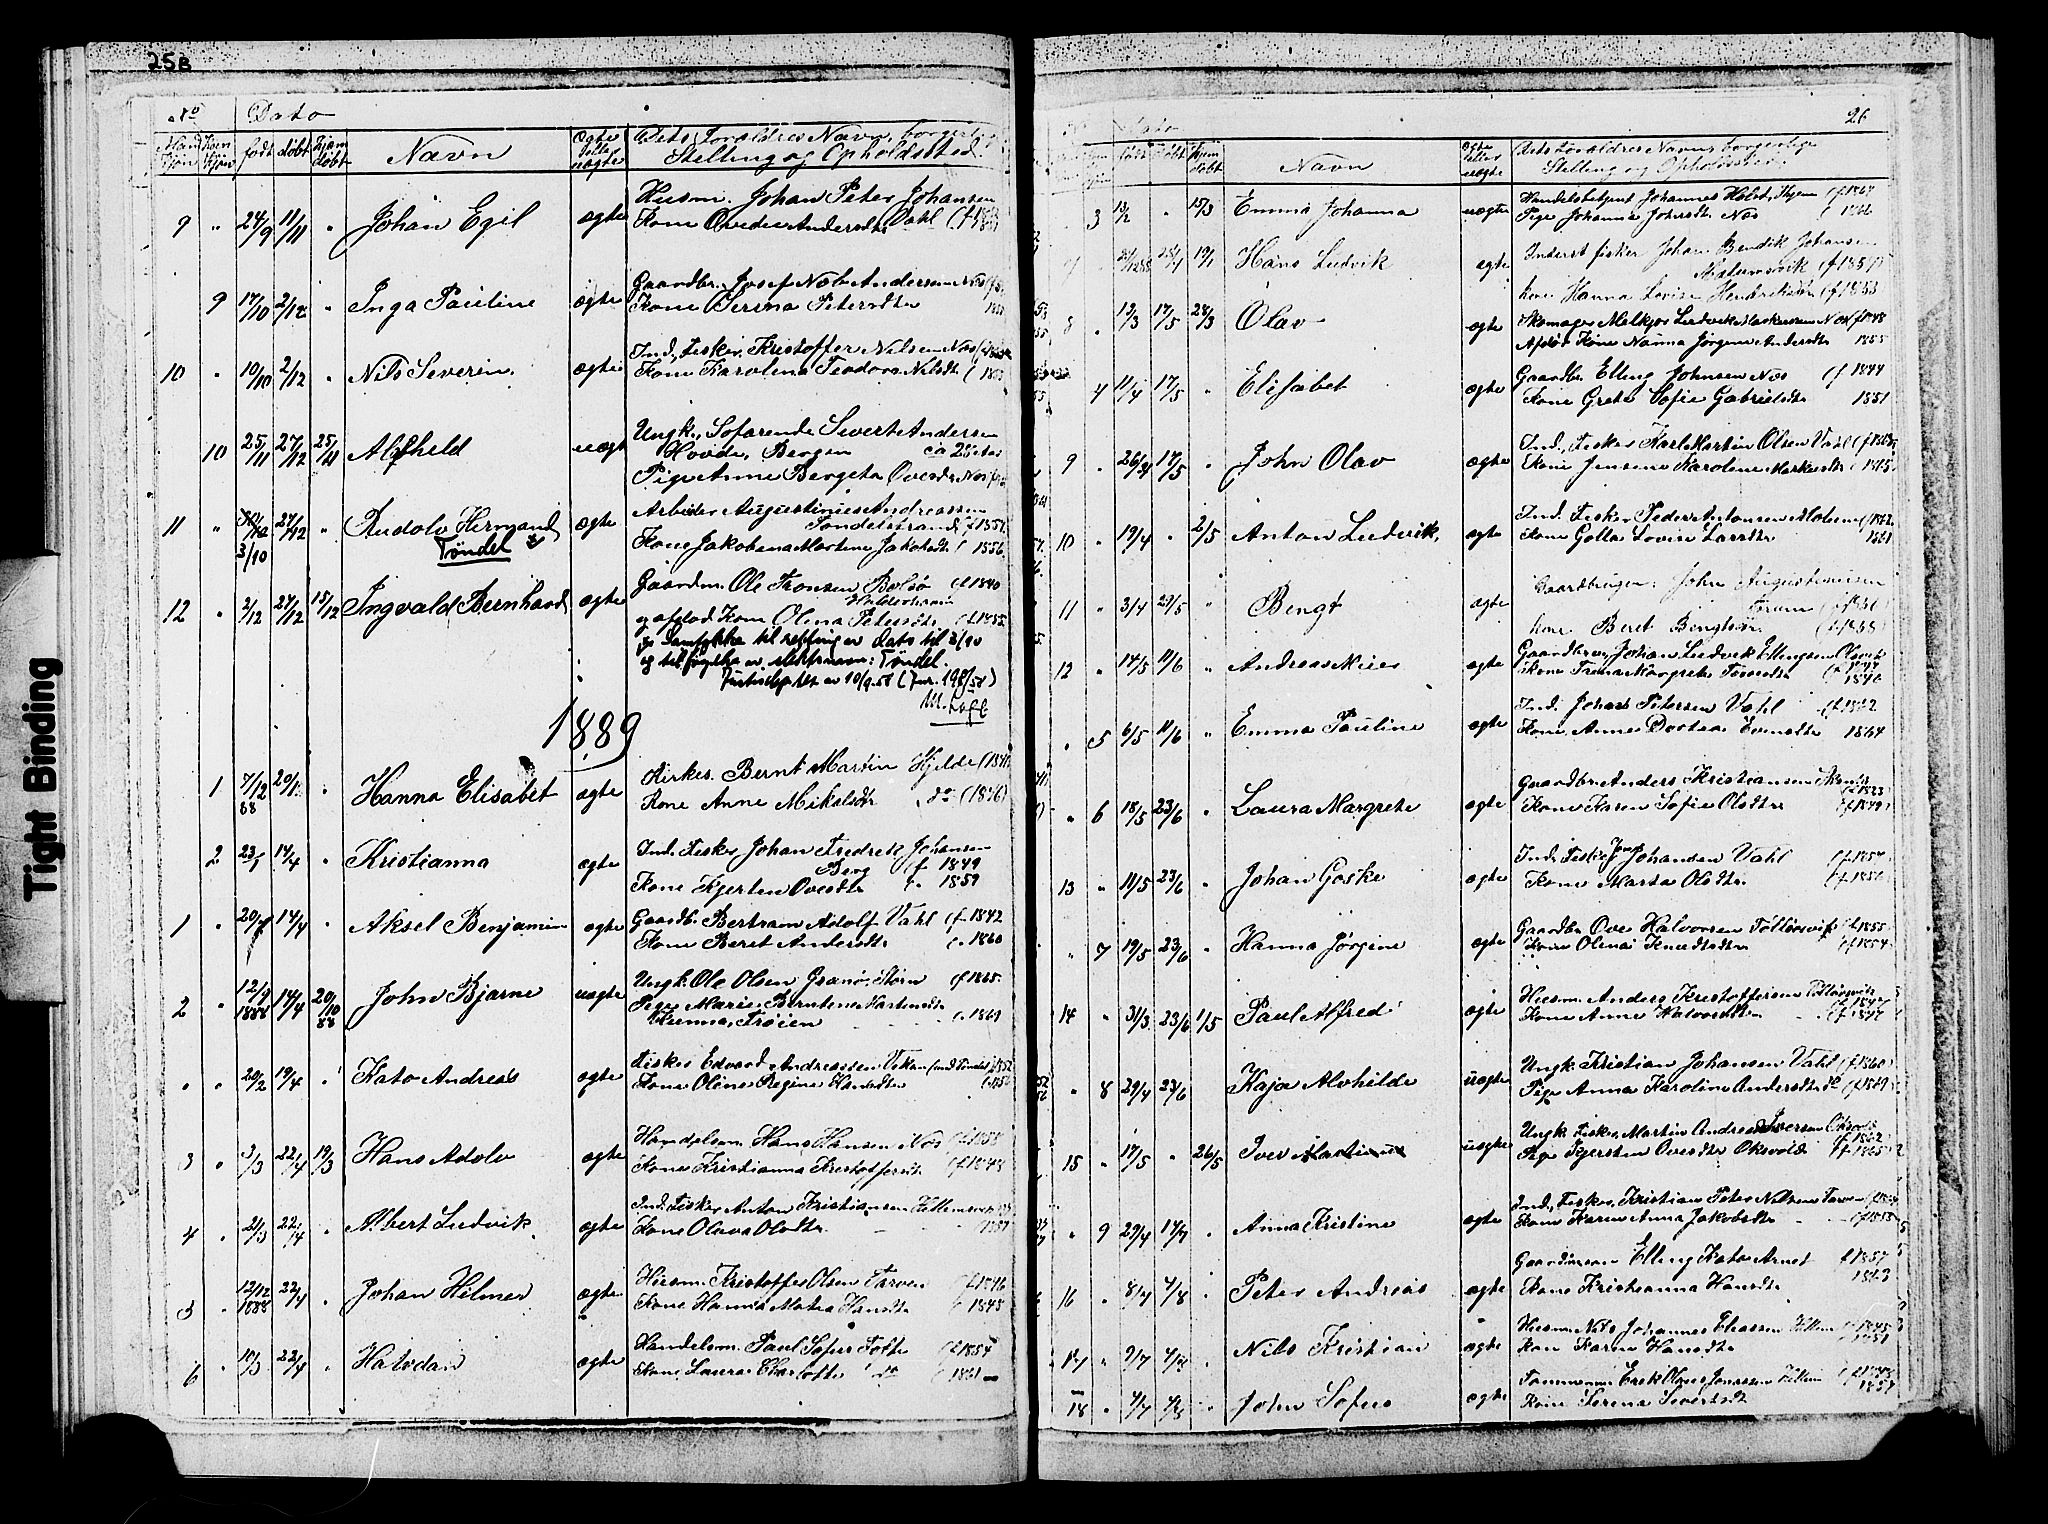 25B
No Dato
Mand Kjön Kvin Kjön født døbt hjem døbt Navn Ægte eller uægte Dets Forældres Navn, borgerlige
Stilling og Opholdssted.
9 " 24/9 11/11 " Johan Egil ægte Husm. Johan Peter Johansen
Kone Ovedie Andersdtr Dahl
9 17/10 2/12 " Inga Pauline ægte Gaardbr. Josef Andersen Næs
Kone Serina Petersdtr
10 " 10/10 2/12 " Nils Severin ægte Ind., Fisker, Kristoffer Nilsen Næs
Kone Karolina Teodora Nilsdtr
10 25/11 27/12 25/11 Alfhild uægte Ungk., Søfarende Sivert Andersen
Hovde, Bergen ca 25 etas
Pige Anne Bergeta Ovesdtr Næs
11 " 27/12 " Rudolv Hermand ægte Arbeider Augustinus Andreassen
3/10 Tøndel Tøndelstrand f. 1851
Kone Jakobena Martine Jakobsdtr 1856
12 " 2/12 27/12 15/12 Ingvald Bernhard ægte Gaardm. Ole Tronsen Bolsø f 1840
og afdød Kone Olina Petersdtr f. 1855
Samtykke til retting av dato til 3/10
og tilføyelse av slektsnavn: Tøndel.
Justisdep.tet av 10/9.58 (Jnr. 198/58)
1889
1 7/12 88 20/1 Hanna Elisabet ægte Kirkes. Bernt Martin Hjelde
Kone Anne Mikalsdtr do (1846)
2 23/1 14/4 " Kristianna ægte Ind. Fisker Johan Fredrik Johansen
Berg f 1849
Kone Kjersten Ovesdtr f. 1859
1 " 20/1 14/4 " Aksel Benjamin ægte Gaardb. Bertram Adolf Vahl f 1842
Kone Beret Andersdtr f. 1860
2 " 12/9 1888 14/4 20/10 88 John Bjarne uægte Ungk. Ole Olsen Granøi, Støren f 1865.
Pige Marie Berntine Martinsdtr
Hemne, Trøien f. 1869
" " 20/2 19/4 " Kato Andreas ægte Fisker Edvard Andreassen Vikan 1852
Kone Oline Regine Hansdtr
3 " 3/3 22/4 19/3 Hans Adolv ægte Handelsm. Hans Hansen Næs f 1858
Kone Kristianna Kristoffersdtr f 1848
4 " 2/3 22/4 " Albert Ludvik ægte Ind. Fisker Anton Kristiansen
Kone Oluva Olsdtr
5 " 12/12 1888 22/4 Johan Hilmer ægte Husm. Kristoffer Olsen Tarven f 1846
Kone Hanna Matea Hansdtr f 1848
6 " 10/3 22/4 Halvdan ægte Handelsm. Paul Sofus Tofte f 1854
Kone Laura Charlotte do 1861
26
Dato
født døbt hjem døbt Navn ægte eller uægte Dets Forældres Navn borgerlige
Stilling og Opholdssted
3 13/2 " 15/3 Emma Johanna uægte Handelsbetjent Johannes Holst, f 1868
Pige Johanna Johnsdtr Næs f 1866
7 " 19/1 Hans Ludvik ægte Inderst fisker Johan Bendik Johansen
f 1857
kone Hanna Lovise Hendriksdtr f 1853
8 " 13/3 17/5 28/3 Olav ægte Skomager Melkjor Ludvik Markussen Næs f 1848
Afdød Kone Nanna Jørgine Andersdtr 1855
4 11/4 17/5 " Elisabet ægte Gaardbr. Elling Johnsen Næs f 1844
Kone Grete Sofie Gabrielsdtr 1851
9 " 26/3 17/5 " John Olav ægte Ind., Fisker Karl Martin Olsen Vahl
Kone Jensine Karoline Markusdtr 1865
10 " 19/4 " 2/5 Anton Ludvik, ægte Ind. Fisker Peder Antonsen f 1862
Kone Golla Lovise Larsdtr 1861
11 " 3/4 29/5 " Bengt ægte Gaardbruger John Augustinusen
f 1856
kone Beret Bengtsdtr f 1858
12 " 14/5 11/6 " Andreas Meier ægte Gaardbrug Johan Ludvik Ellingsen
Kone Trina Margrete Tøresdtr 1846
" 5 6/5 11/6 " Emma Pauline ægte Ind. Johan Petersen Vahl f 1862
Kone Anne Dortea Evensdtr 1864
" 6 18/5 23/6 " Laura Margrete ægte Gaardbr. Anders Kristiansen
Kone Karen Sofie Olsdtr f 1849
13 " 11/5 23/6 " Johan Gøske ægte Ind. Fisker Jens Johansen Vahl f 1854
Kone Marta Olsdtr f 1856
" 7 19/5 23/6 " Hanna Jørgine ægte Gaardbr Ove Halvorsen f 1855
Kone Olina Knudsdtr f 1854
14 " 31/3 23/6 1/5 Paul Alfred ægte Husm. Anders Kristoffersen
Kone Anne Halvorsdtr f 1847
" 8 29/4 23/6 Kaja Alvhilde uægte Ungk Kristian Johansen Vahl f 1860
Pige Anna Karoline Andersdtr f 1869
15 " 17/5 " 26/5 Iver Martinus uægte Ungk Fisker, Martin Andreas Iversen
f 1862
Pige Kjersten Ovesdtr Oksvold f 1865
" 9 29/4 14/7 " Anna Kristine ægte Ind, Fisker, Kristian Peter Nilsen Tarven
Kone Karen Anna Jakobsdtr f 1855
16 " 8/7 4/8 " Peter Andreas ægte Gaardmann Elling Kato Arnet f 1857
Kone Kristianna Hansdtr 1863
17 " 9/7 4/8 " Nils Kristian ægte Husm. Nils Johannes Eliassen f 1845
Kon Karen Hansdtr f 1851
18 " 7/7 4/8 " John Sofus ægte Tømmerm. Erik Olaus Jonassen
Kone Serena Sivertsdt 1857
Tight Binding